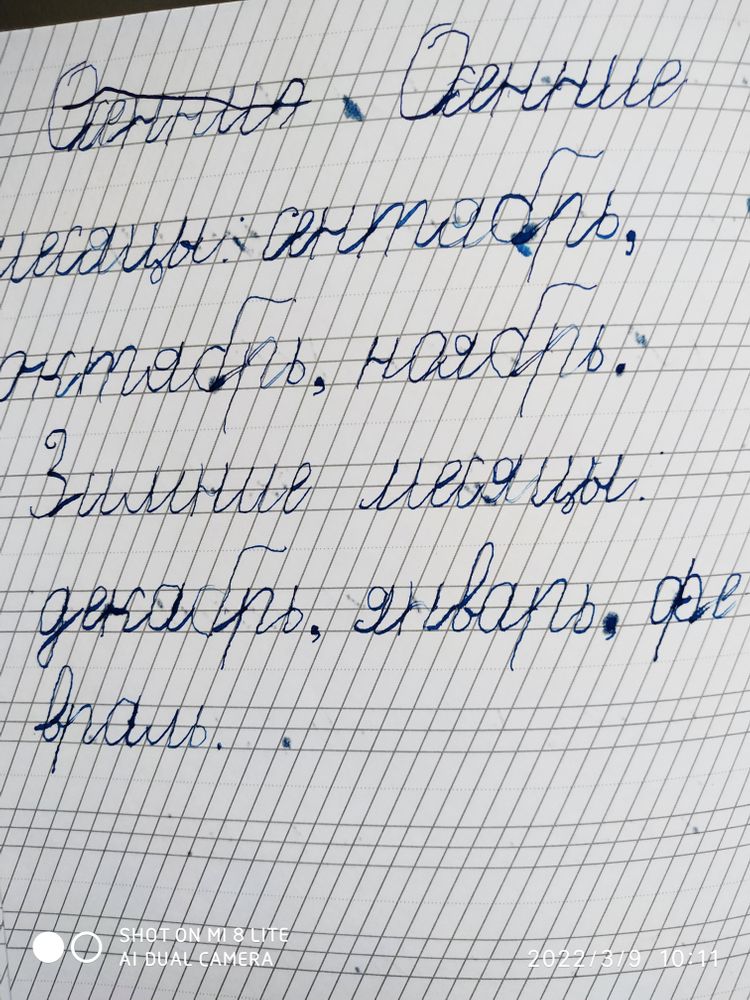 Осенния Осенние
месяцы: сентябрь,
октябрь, ноябрь.
Зимние месяцы:
декабрь, январь, фе
враль.
SHOT ON MI 8 LITE
AI DUAL CAMERA
2022/3/9 10:11